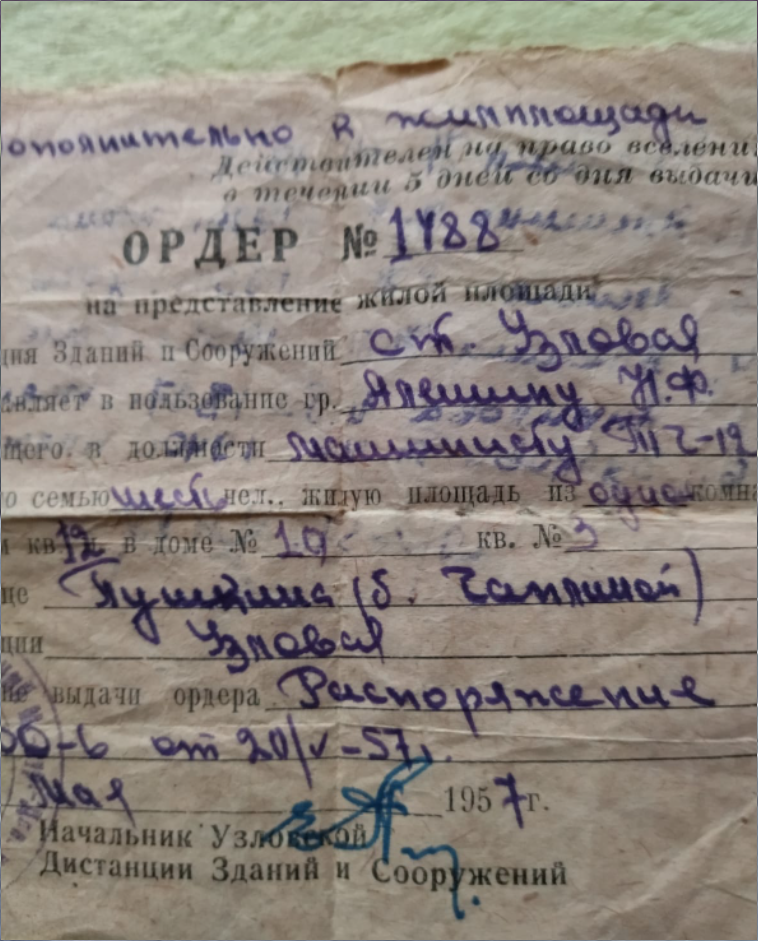 ополнительно к жилплощади
Действителен на право вселени
в течении 5 дней со дня выдачи
ОРДЕР № 1488
на представление жилой площади
ция Зданий и Сооружений ст. Узловая
авляет в пользование гр. Алешину Н.Ф.
щего в должности машинисту ТЧ-12
ю семью шесть чел., жилую площадь из одно комна
м кв 12 в доме № 10 кв. № 3
це Пушкина (б. Чаплиной)
ции Узловая
ие выдачи ордера Распоряжение
от 20/V-57г.
мая 1957г.
Начальник Узловской
Дистанции Зданий и Сооружений